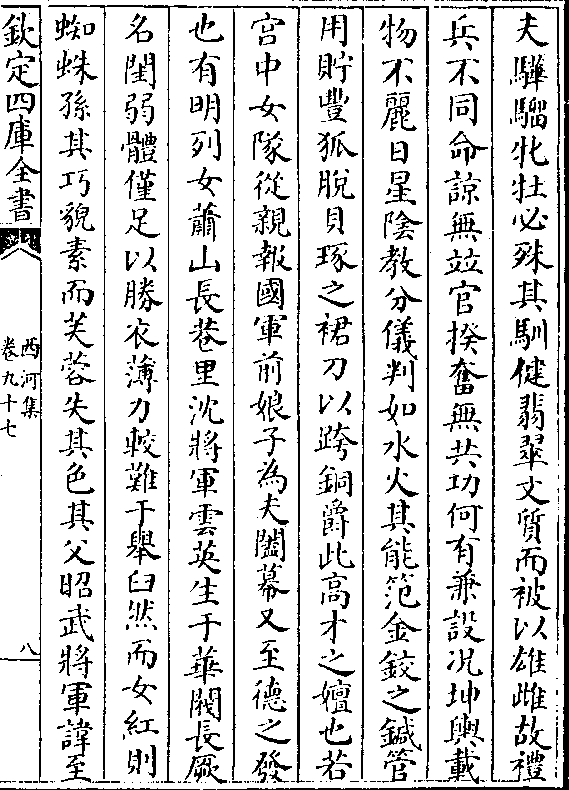 夫驊騮牝牡必殊其馴健翡翠文質而被以雄雌故禮
兵不同命諒無竝官揆奮無共功何有兼設况坤輿載
物不麗日星陰教分儀判如水火其能笵金鉸之鍼管
用貯豐狐脫貝琢之裙刀以跨銅爵此高才之嬗也若
宫中女隊從親報國軍前娘子為夫闢幕又至德之發
也有明列女蕭山長巷里沈將軍雲英生于華閥長厥
名閨弱體僅足以勝衣薄力較難于舉臼然而女紅則
蜘蛛孫其巧貌素而芙蓉失其色其父昭武將軍諱至
欽定四庫全書
西河集
卷九十七
八